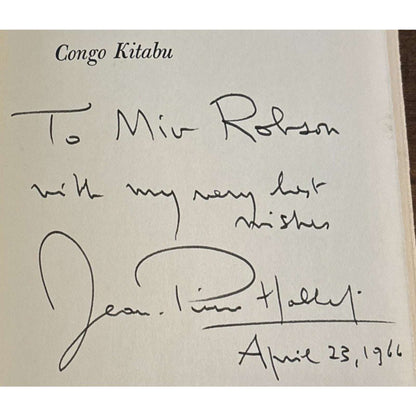 Congo Kitabu
To Miv Robson
with my very best
wishes
Jean-Pierre Hallet
April 23, 1966